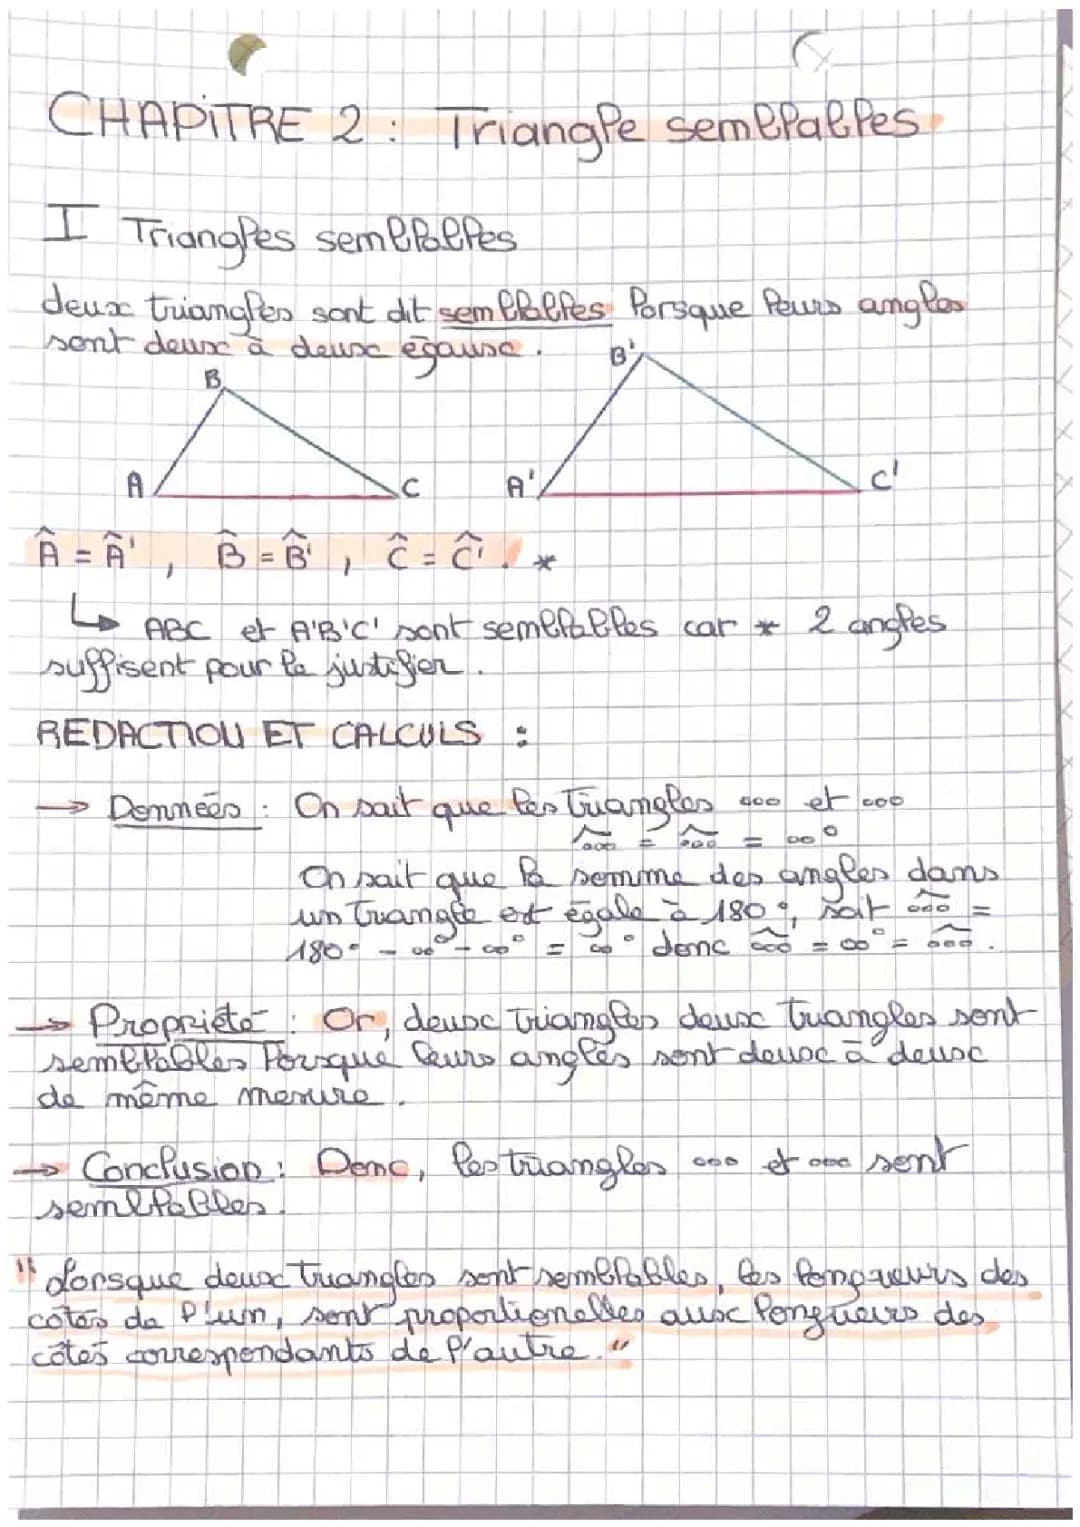 CHAPITRE 2 : Triangle semblables
I Triangles semblables
deux triangles sont dit semblables lorsque leurs angles
sont deux à deux égaux.
B
B'
A
C
A'
C'
Â = Â' , B̂ = B̂' , Ĉ = Ĉ'. *
↳ ABC et A'B'C' sont semblables car * 2 angles
suffisent pour le justifier.
REDACTION ET CALCULS :
→ Données : On sait que les triangles ooo et ooo
ooo = ooo = oo°
On sait que la somme des angles dans
un triangle est égale à 180°, soit ooo =
180° - oo° - oo° = oo° donc ooo = oo° = ooo.
→ Propriété : Or, deux triangles deux triangles sont
semblables lorsque leurs angles sont deux à deux
de même mesure.
→ Conclusion : Donc, les triangles ooo et ooo sont
semblables.
"Lorsque deux triangles sont semblables, les longueurs des
côtés de l'un, sont proportionelles aux longueurs des
côtés correspondants de l'autre."